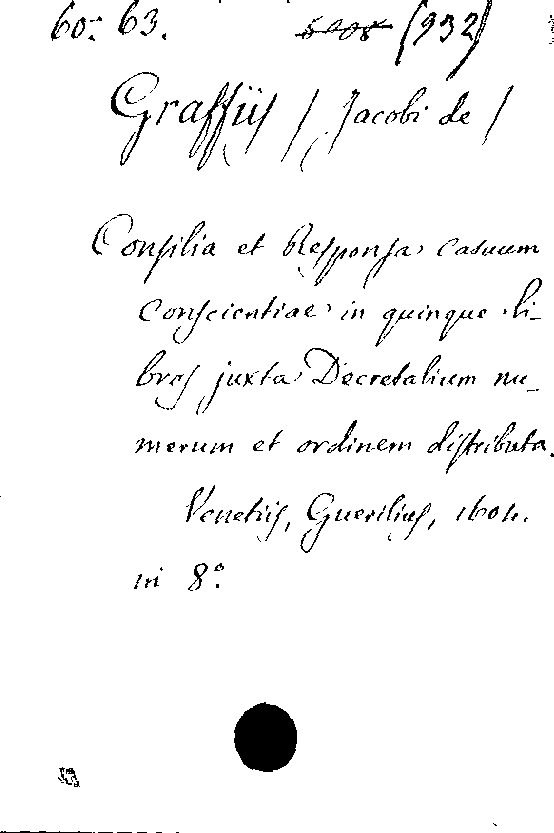 60: 63. (932)
Graffiis / Jacobi de /
Consilia et Responsa casuum
conscientiae in quinque li-
bros juxta Decretalium nu-
merum et ordinem distributa.
Venetiis, Guerilius, 1604.
in 8°.